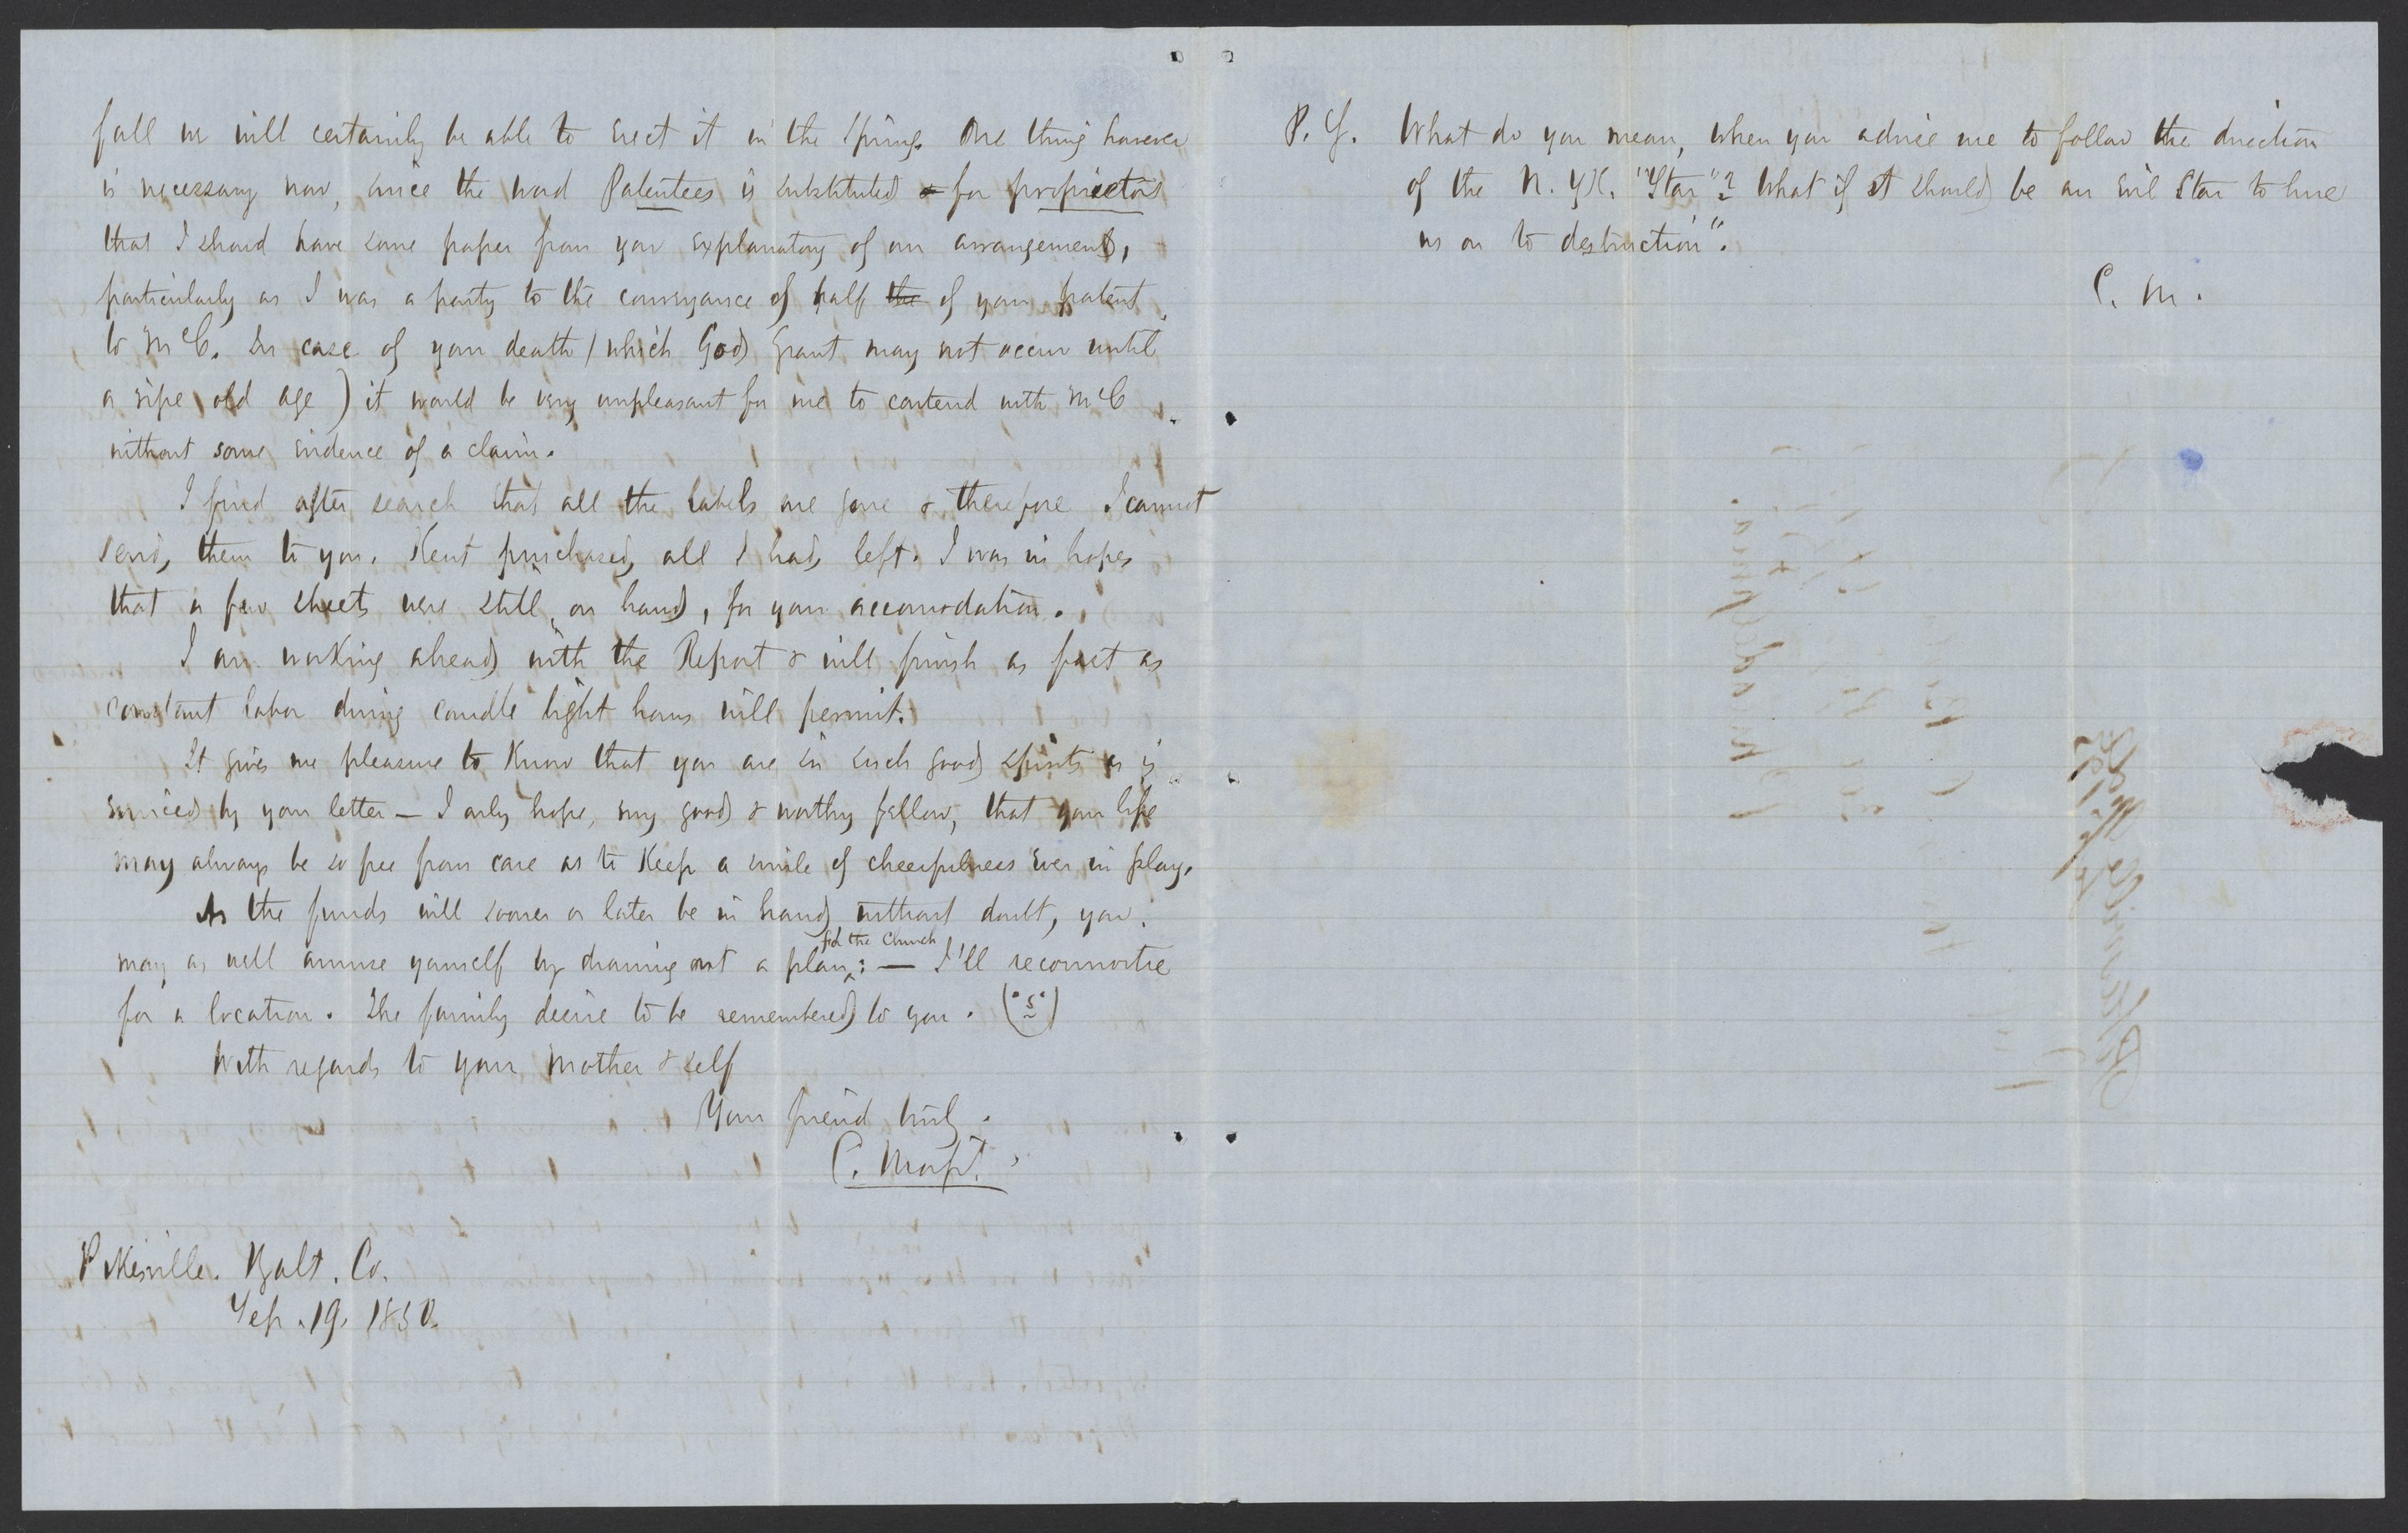 fall we will certainly be able to erect it in the Spring. One thing however
is necessary now, since the word Patentees is substituted for proprietors
that I should have some paper from you explanatory of our arrangement,
particularly as I was a party to the conveyance of half the of your patent
to McC. In case of your death (which God grant may not occur until
a ripe old age) it would be very unpleasant for me to contend with McC
without some evidence of a claim.
I find after search that all the labels are gone & therefore I cannot
send, them to you. Kent purchased, all I had, left. I was in hopes
that a few sheets were still on hand, for your accomodation.
I am working ahead with the Report & will finish as fast as
constant labor during candle light hours will permit.
It gives me pleasure to Know that you are in such good spirits as is
evinced by your letter — I only hope, my good & worthy fellow, that your life
may always be so free from care as to Keep a smile of cheerfulness ever in play.
As the funds will sooner or later be in hand without doubt, you
may as well amuse yourself by drawing out a plan for the Church: — I'll reconnoitre
for a location. The family desire to be remembered to you.
With regards to your Mother & self
Your friend truly.
C. Morfit.
Pikesville. Balt. Co.
Sep. 19. 1850.
P.S. What do you mean, when you advise me to follow the direction
of the N. YK. "Star"? What if it should be an evil Star to lure
us on to destruction".
C. M.